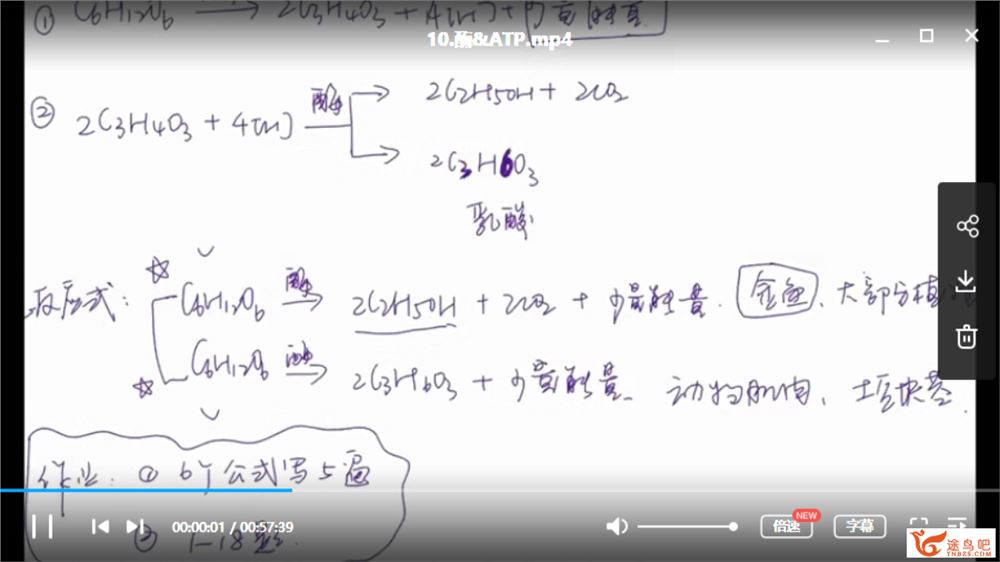 ① C6H12O6 → 2C3H4O3 + 4[H] + 少量能量
10.酶&ATP.mp4
② 2C3H4O3 + 4[H] 酶 2C2H5OH + 2CO2
2C3H6O3
乳酸
反应式: C6H12O6 酶 2C2H5OH + 2CO2 + 少量能量. 金鱼、大部分植
C6H12O6 酶 2C3H6O3 + 少量能量、动物肌肉、块茎.
作业: ① 6个公式写5遍
② 1-18题.
00:00:01 / 00:57:39
倍速 NEW 字幕
途鸟吧
TNBZS.COM